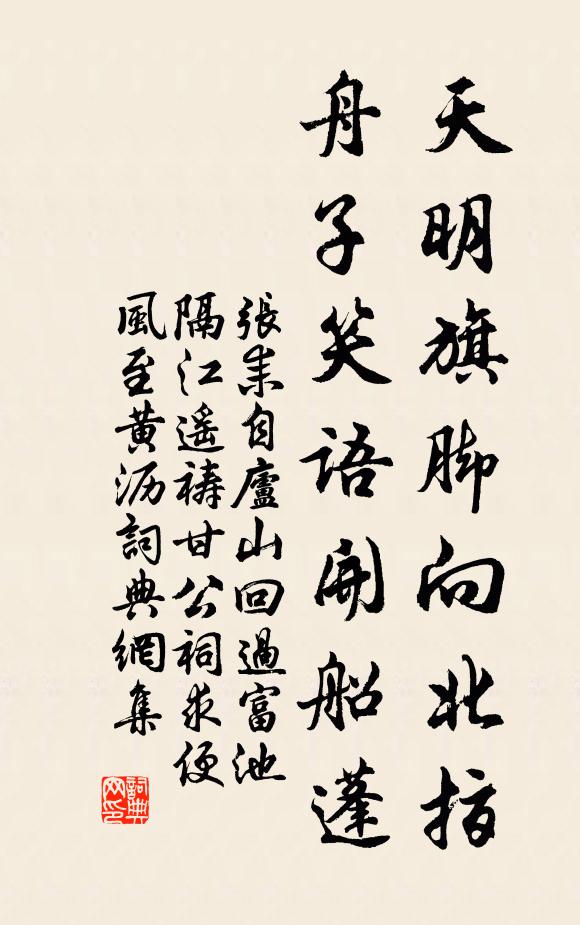 天明旗脚向北指
舟子笑語開船蓬
張耒自廬山回過富池
隔江遥禱甘公祠求便
風至黄沥詞典網集
詞典网印